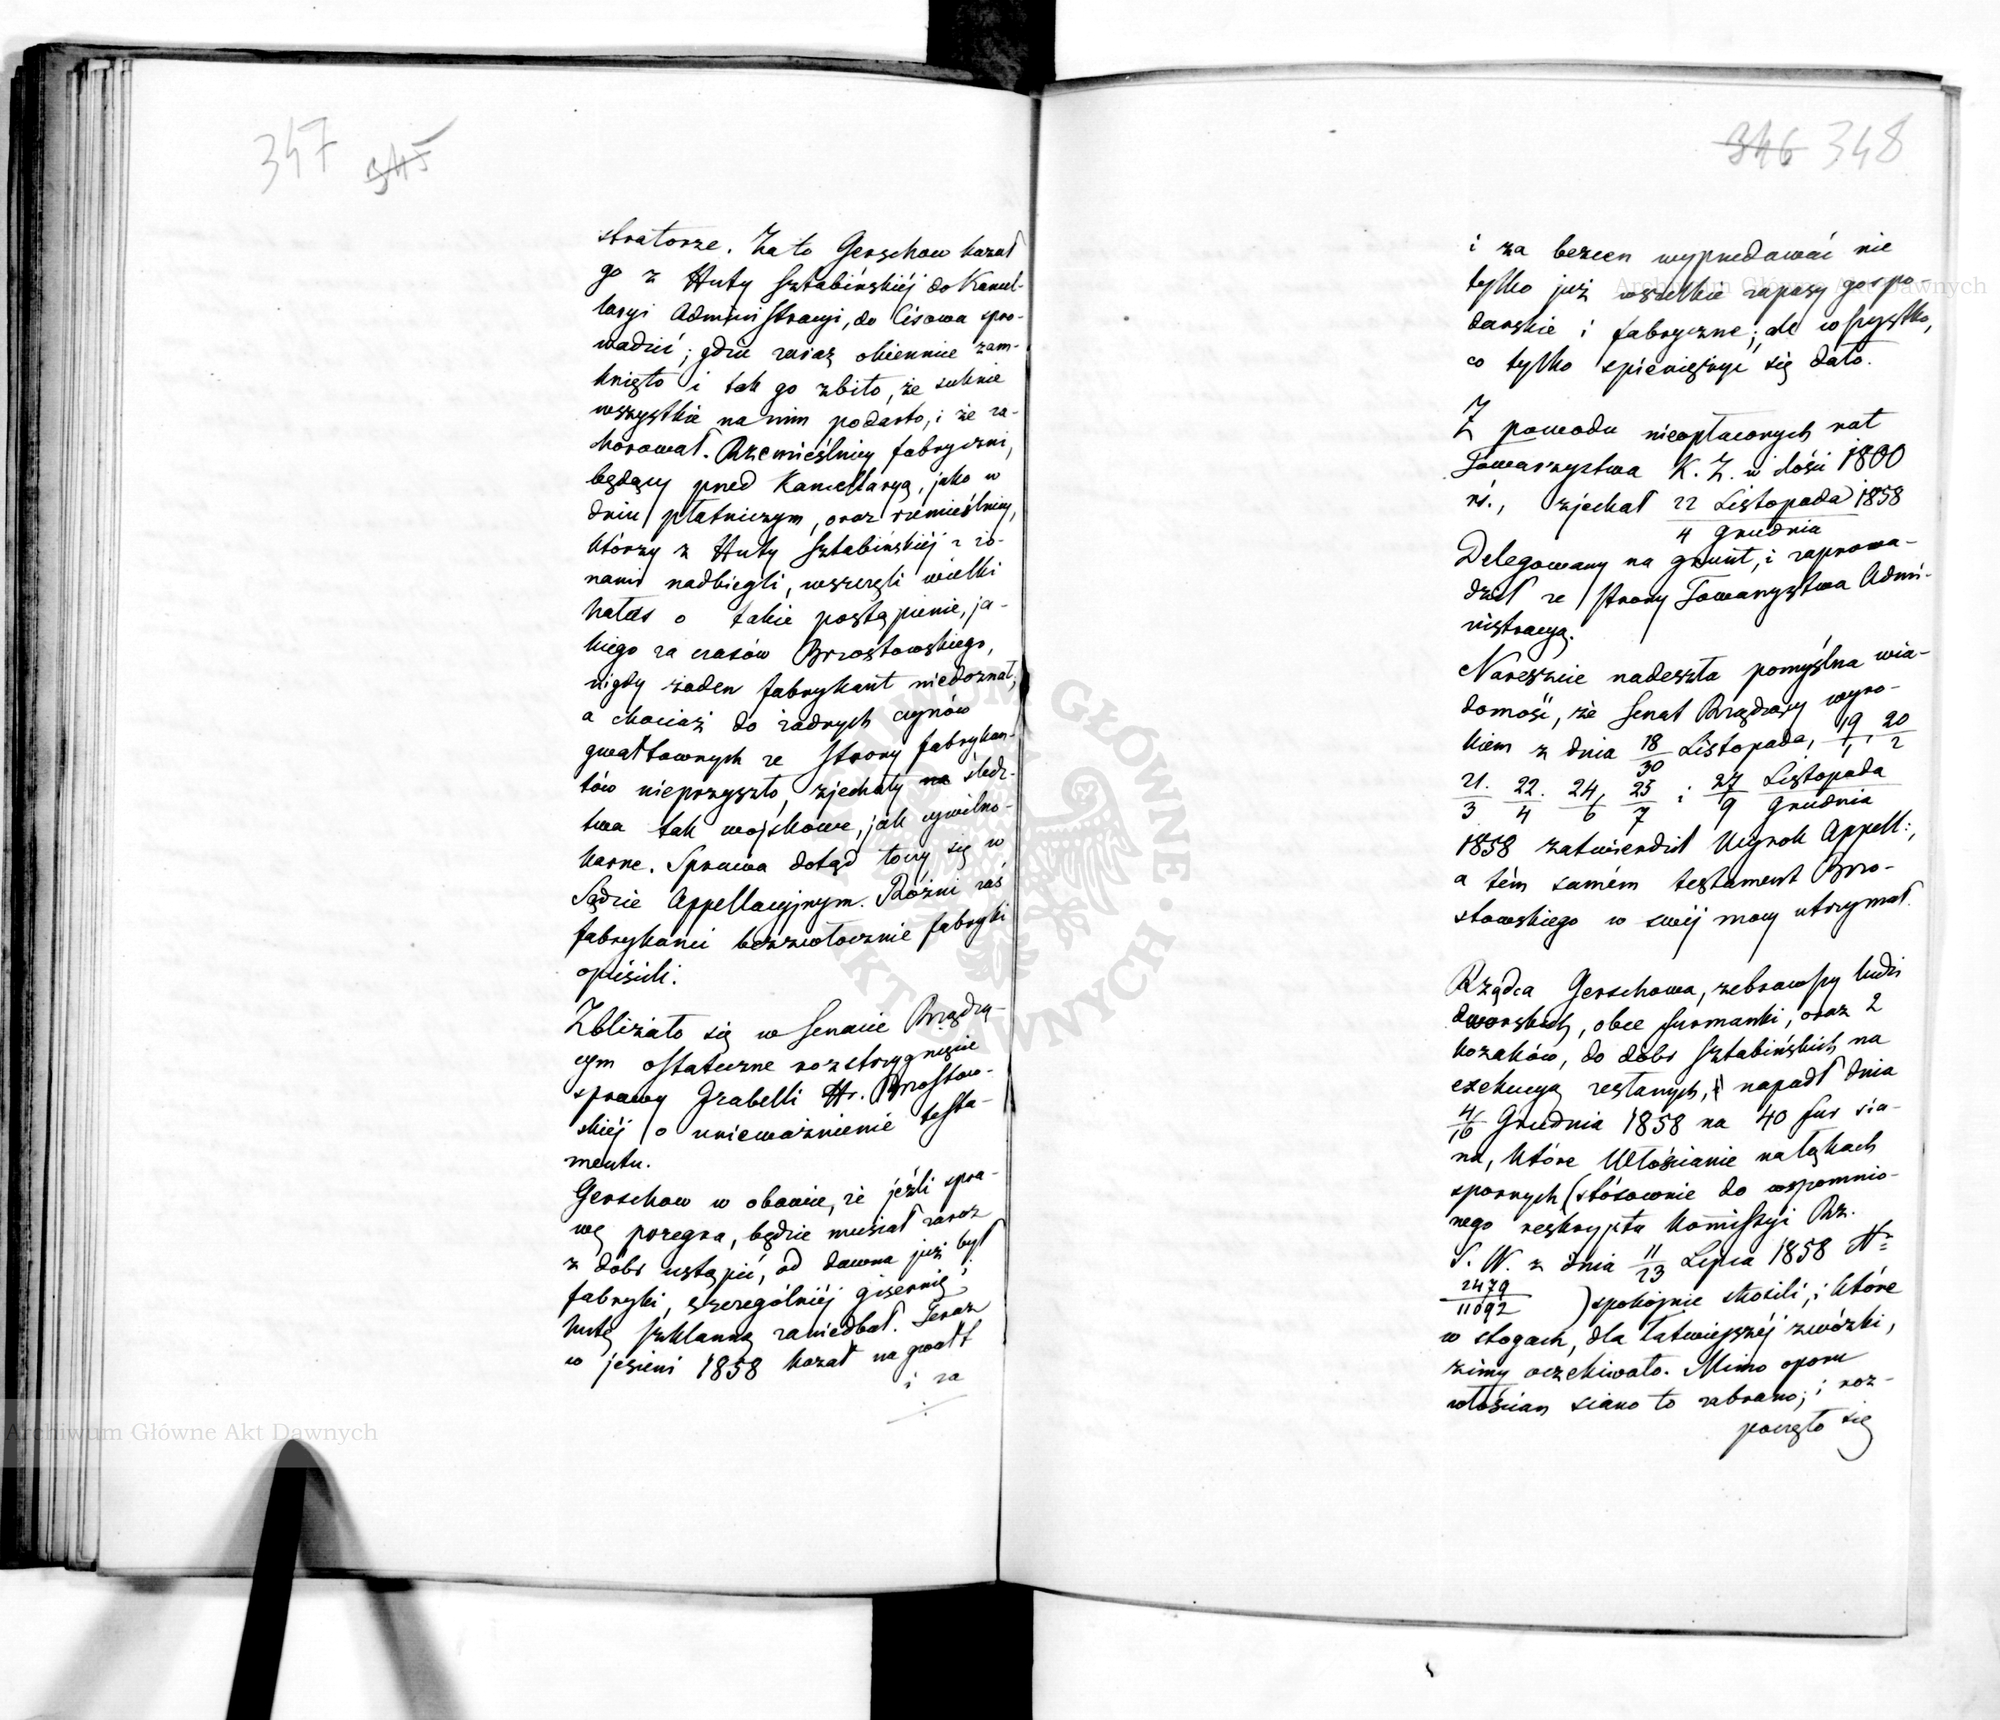 347 345
stratorze. Za to Gerschow kazał
go z Huty Sztabińskiéj do Kancel-
laryi Administracyi, do Cisowa spro-
wadzić; gdzie zaraz okiennice zam-
knięto i tak go zbito, że suknie
wszystkie na nim podarto, i że za-
chorował. Rzemieślnicy fabryczni,
będący przed Kancellaryą, jako w
dniu płatniczym, oraz rzemieślnicy,
którzy z Huty Sztabińskiéj z żo-
nami nadbiegli, wszczęli wielki
hałas o takie postąpienie, ja-
kiego za czasów Brzostowskiego,
nigdy żaden fabrykant niedoznał,
a chociaż do żadnych czynów
gwałtownych ze strony fabrykan-
tów nieprzyszło, zjechały na śledz-
twa tak wojskowe, jak cywilno-
karne. Sprawa dotąd toczy się w
Sądzie Appellacyjnym. Różni zaś
fabrykanci bezzwłocznie fabryki
opuścili.
Zbliżało się w Senacie Rządzą-
cym ostateczne rozstrzygnięcie
sprawy Izabelli Hr. Brzostow-
skiéj o unieważnienie testa-
mentu.
Gerschow w obawie, że jeźli spra-
wę przegra, będzie musiał zaraz
z dóbr ustąpić, od dawna już był
fabryki, szczególniéj gisernię i
hutę szklanną zaniedbał. Teraz
w jesieni 1858 kazał na gwałt
i za
346 348
i za bezcen wyprzedawać nie
tylko już wszelkie zapasy gospo-
darskie i fabryczne; ale wszystko,
co tylko spieniężyć się dało.
Z powodu nieopłaconych rat
Towarzystwa K. Z. w ilości 1800
rs., zjechał 22 Listopada 1858
4 Grudnia
Delegowany na grunt, i zaprowa-
dził ze strony Towarzystwa Admi-
nistracyą.
Nareszcie nadeszła pomyślna wia-
domość, że Senat Rządzący wyro-
kiem z dnia 18/30 Listopada, 19/1, 20/2
21/3. 22/4. 24/6, 25/7 i 27/9 Listopada
Grudnia
1858 zatwierdził Wyrok Appell:,
a tém samém testament Brzo-
stowskiego w swéj mocy utrzymał.
Rządca Gerschowa, zebrawszy ludzi
dworskich, obce furmanki, oraz 2
kozaków, do dóbr Sztabińskich na
exekucyą zesłanych, napadł dnia
4/16 Grudnia 1858 na 40 fur sia-
na, które Włościanie na łąkach
spornych (stósownie do wspomnio-
nego reskryptu Kommissyi Rz.
S. W. z dnia 11/23 Lipca 1858 Nr
2479/11092 ) spokojnie skosili, i które
w stogach, dla łatwiejszéj zwózki,
zimy oczekiwało. Mimo oporu
włościan siano to zabrano; i roz-
poczęło się
Archiwum Główne Akt Dawnych
Archiwum Główne Akt Dawnych